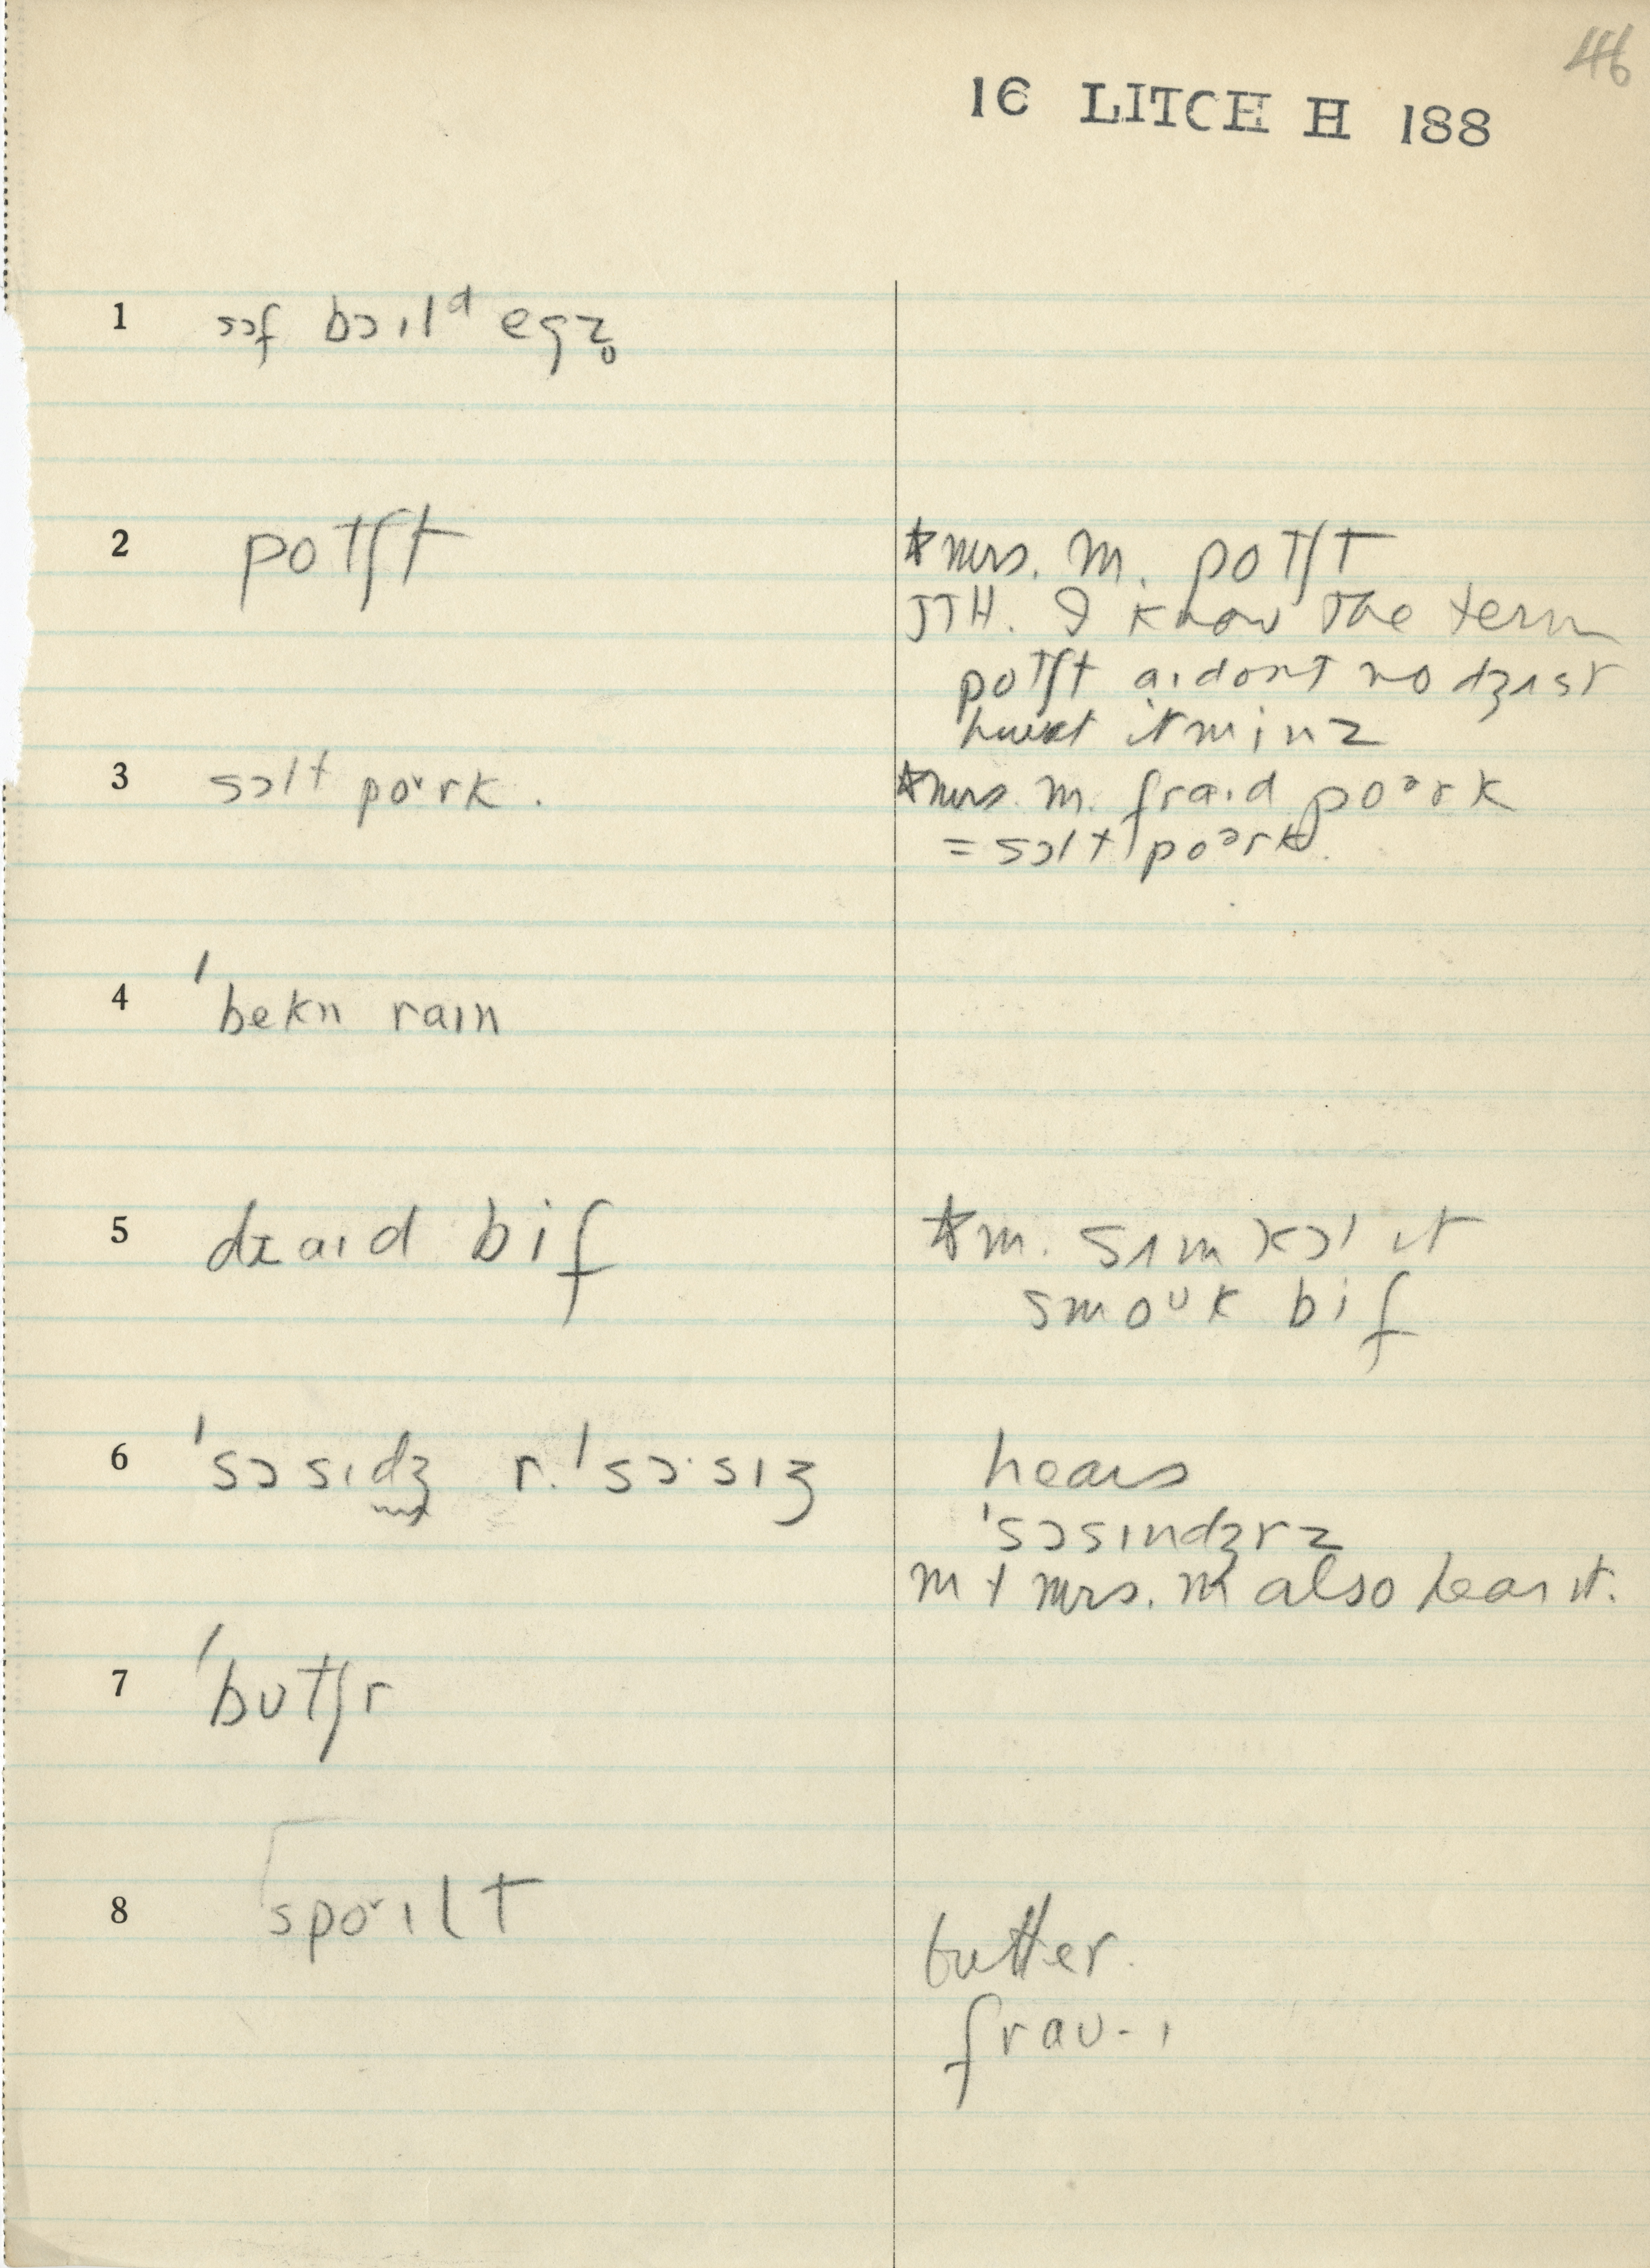 46
16 LITCH H 188
1 sɔf bɔɪlᵈ egz̥
2 potʃt
*Mrs. M. potʃt
JTH. I know the term
potʃt aɪ dont no dʒʌst
it minz
3 sɔlt po˅rk.
*Mrs. M. fraɪd poᵊrk
= sɔlt poᵊrk.
4 ˈbekn raɪn
5 draɪd bif
*M. sʌm kɔl ɪt
smoᶷk bif
6 ˈsɔsɪdʒ r. ˈsɔ·sɪʒ
hears
ˈsɔsɪndʒrz
M + Mrs. M also hear it.
7 ˈbutʃr
8 spo˅ɪlt
butter.
frau-ɪ